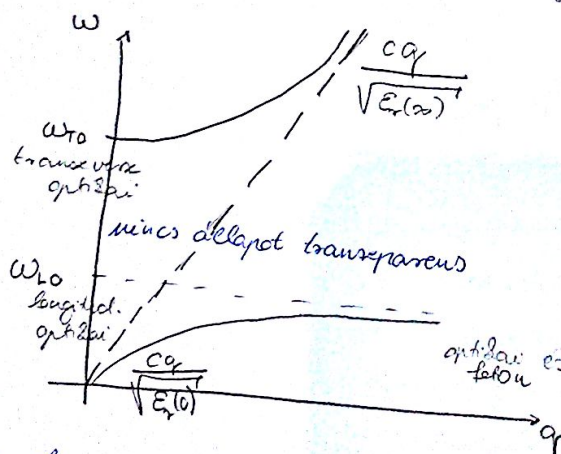 ω
cq
√εr(∞)
ωTO
transzverz
optikai
nincs állapot transzparens
ωLO
longitud.
optikai
cq
√εr(0)
optikai
fonon
q